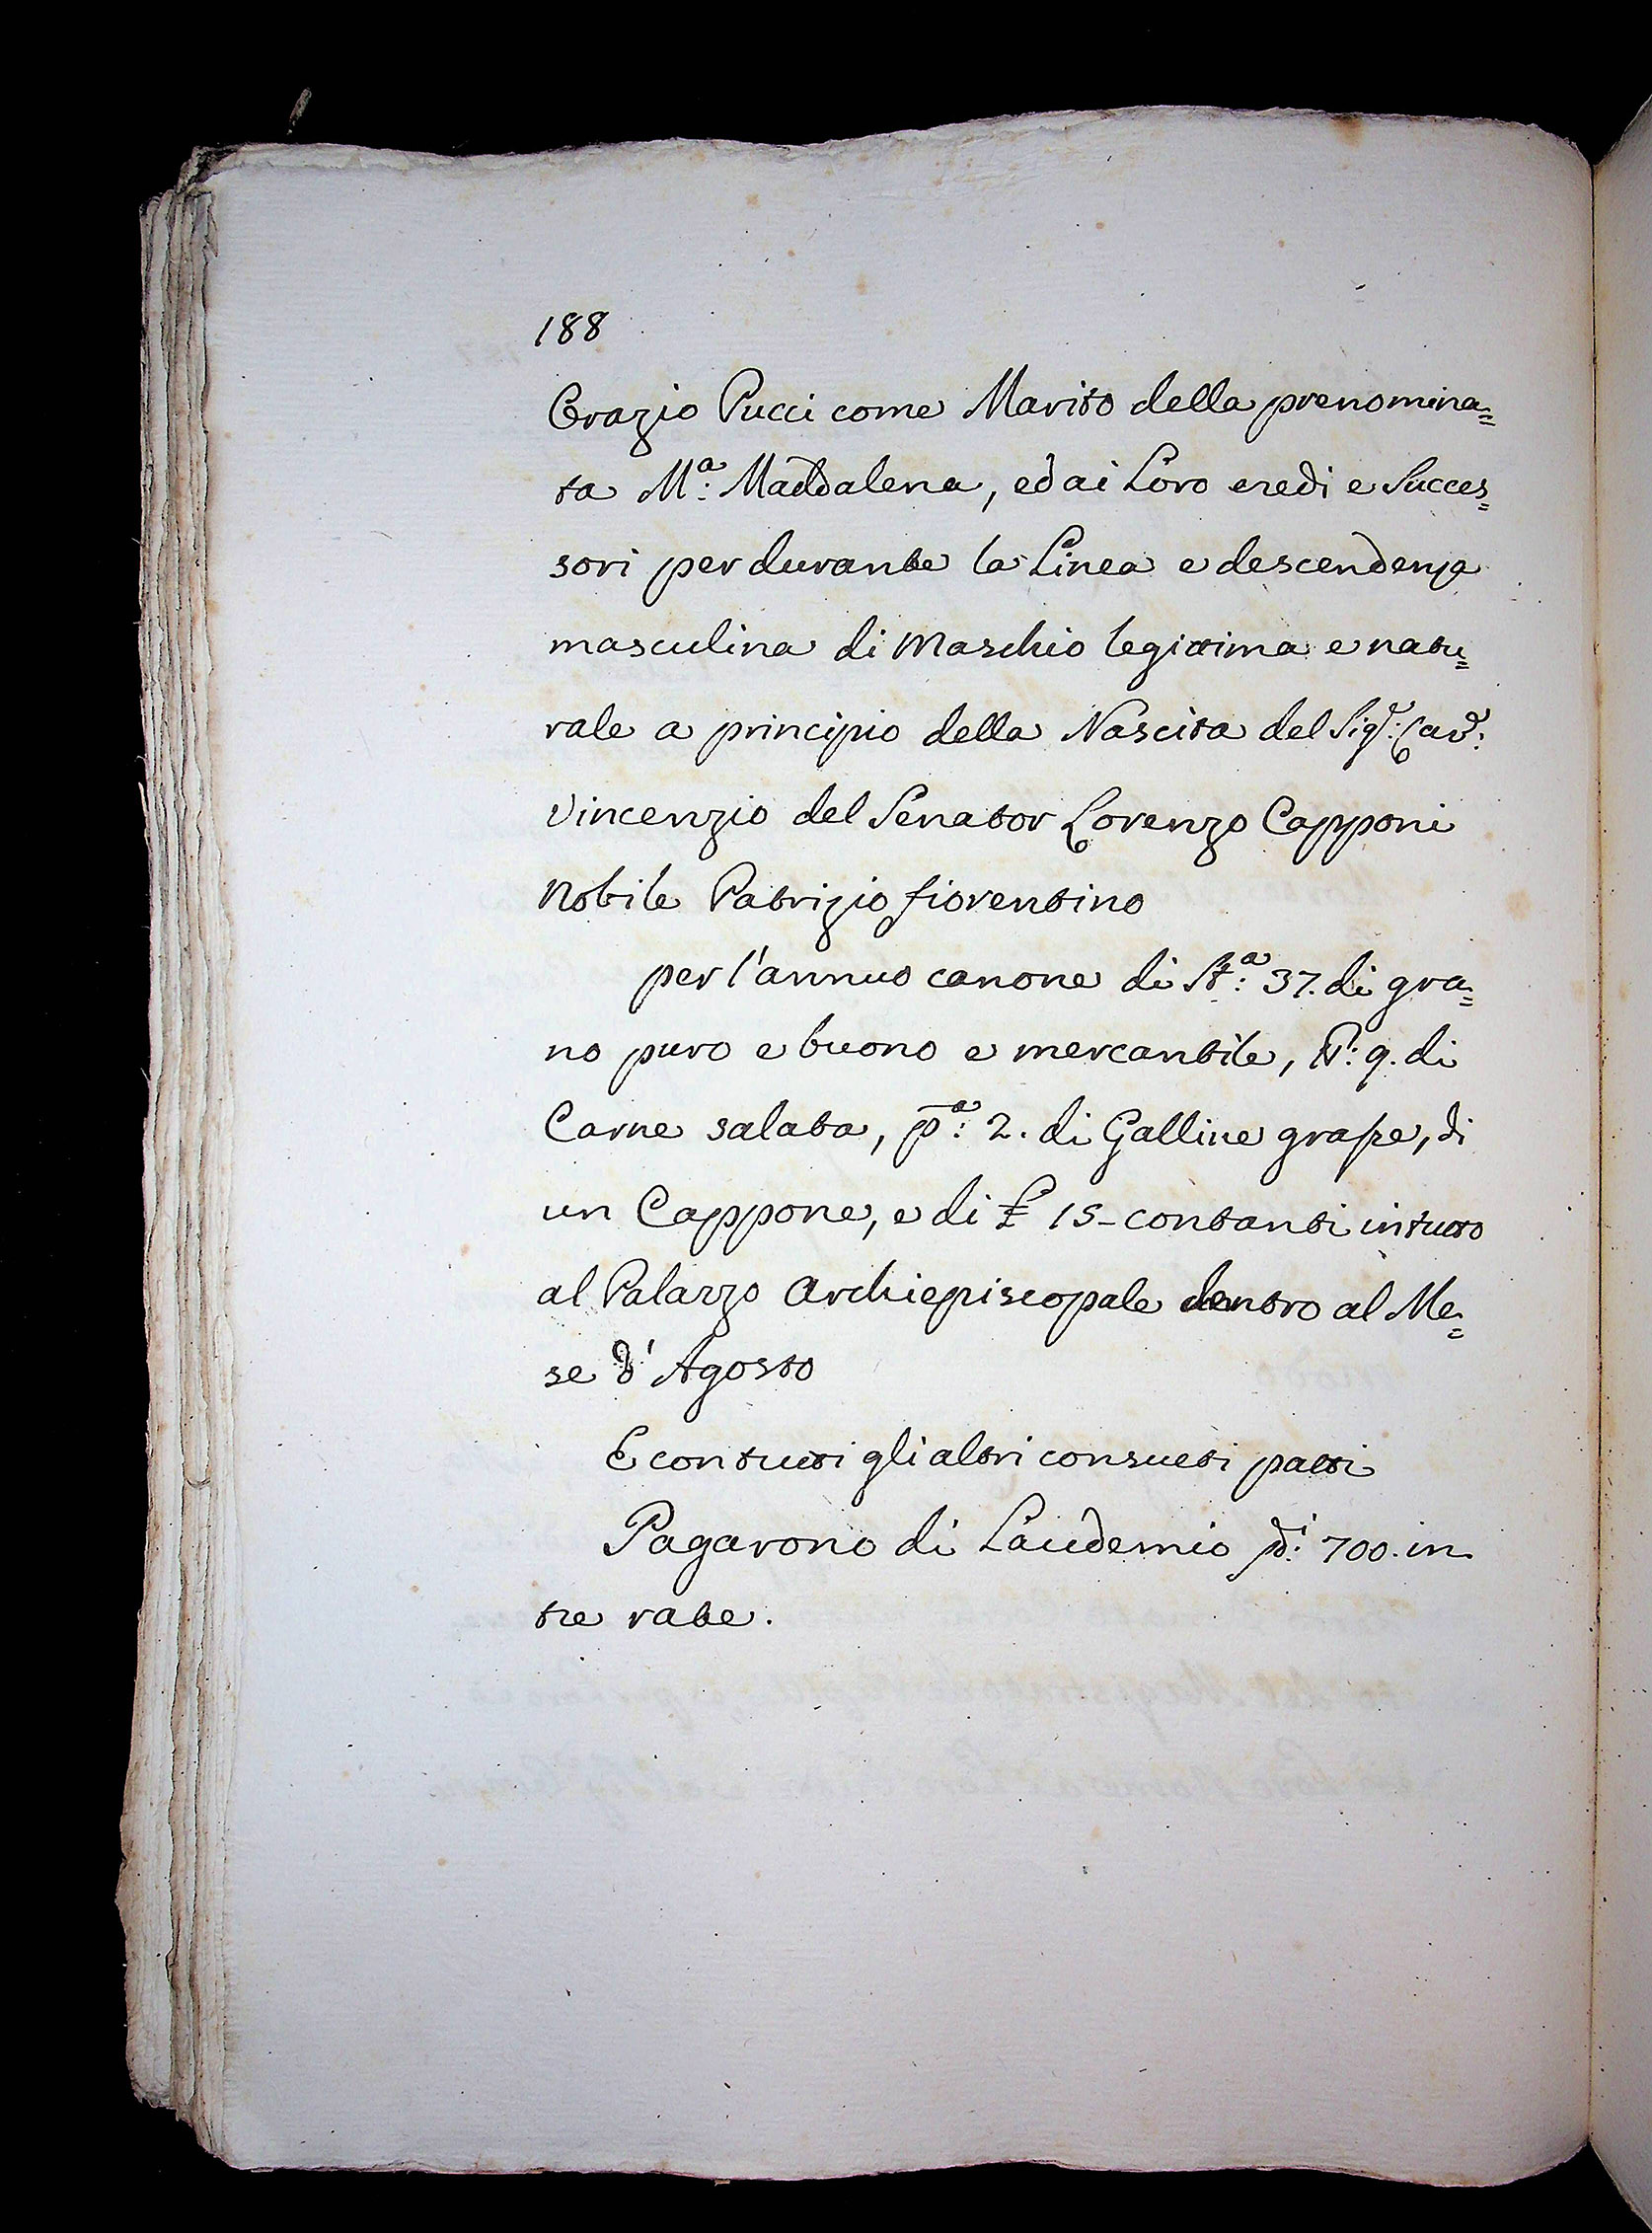 188
Orazio Pucci come Marito della prenomina=
ta M.ª Maddalena, ed ai Loro eredi e Succes=
sori perdurante la Linea e descendenza
masculina di Maschio legittima e natu=
rale a principio della Nascita del Sig.r Cav.r
Vincenzio del Senator Lorenzo Capponi
Nobile Patrizio fiorentino
per l'annuo canone di St.ª 37. di gra=
no puro e buono e mercantile, 9. di
Carne salata, p.ª 2. di Galline grasse, di
un Cappone, e di £ 15- contanti in tutto
al Palazzo Archiepiscopale dentro al Me=
se d'Agosto
E con tutti gli altri consueti patti
Pagarono di Laudemio 700. in
tre rate.